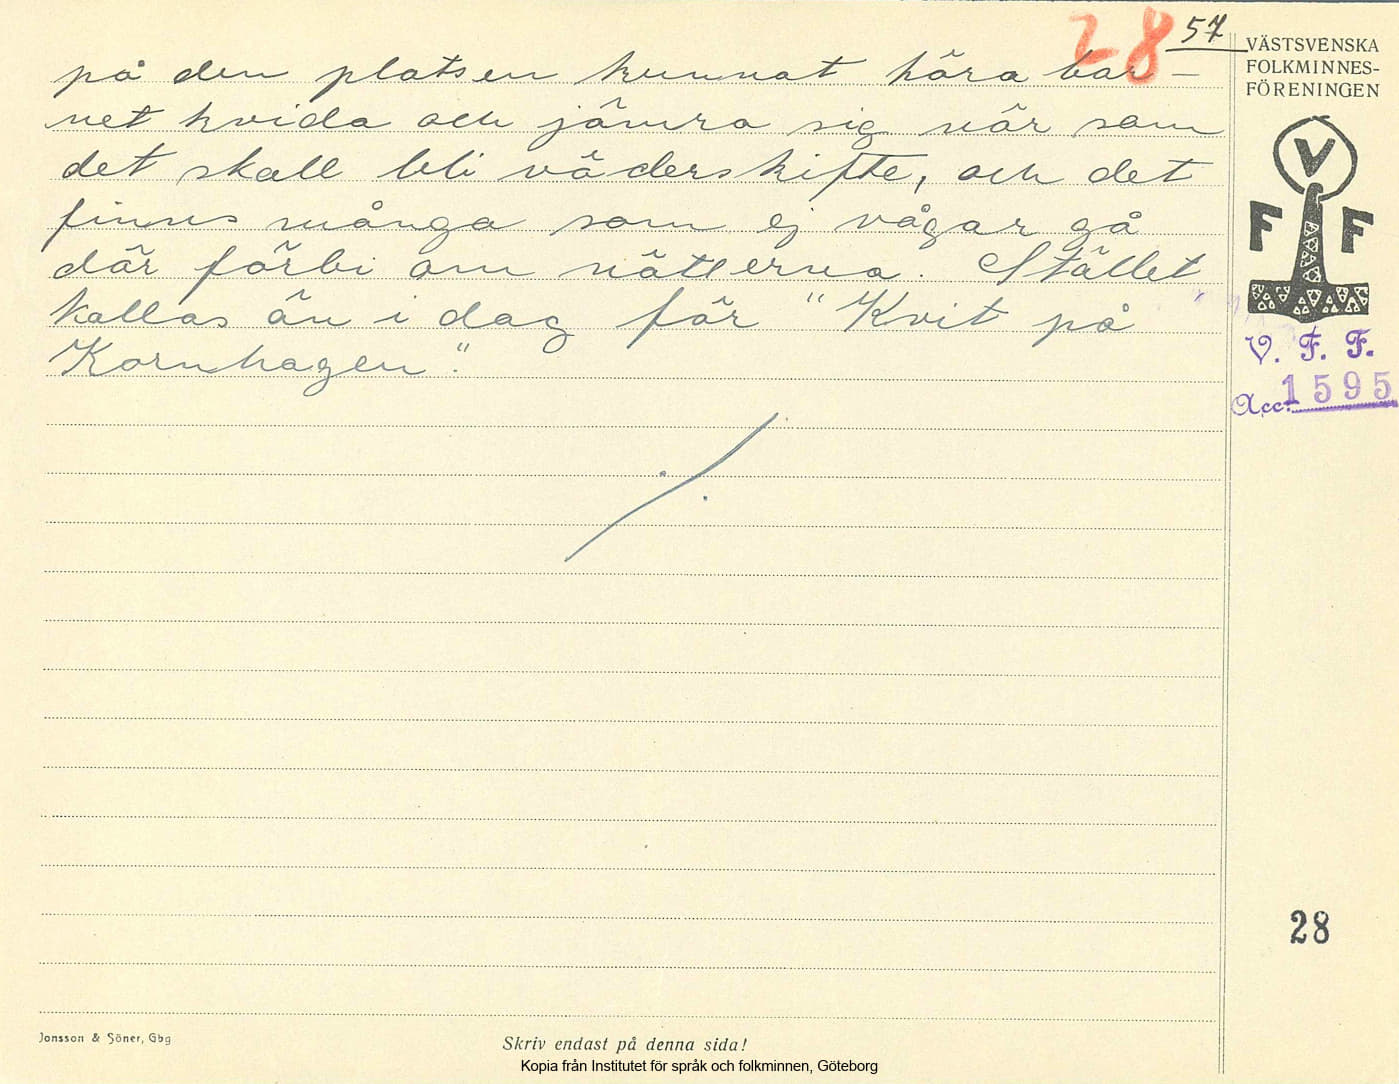 28 57
på den platsen kunnat höra bar-
net kvida och jämra sig när som
det skall bli väderskifte, och det
finns många som ej vågar gå
där förbi om nätterna. Stället
kallas än i dag för "Kvit på
Kornhagen".
VÄSTSVENSKA
FOLKMINNES-
FÖRENINGEN
V
F F
V. F. F.
Acc. 1595
28
Jonsson & Söner, Gbg
Skriv endast på denna sida!
Kopia från Institutet för språk och folkminnen, Göteborg